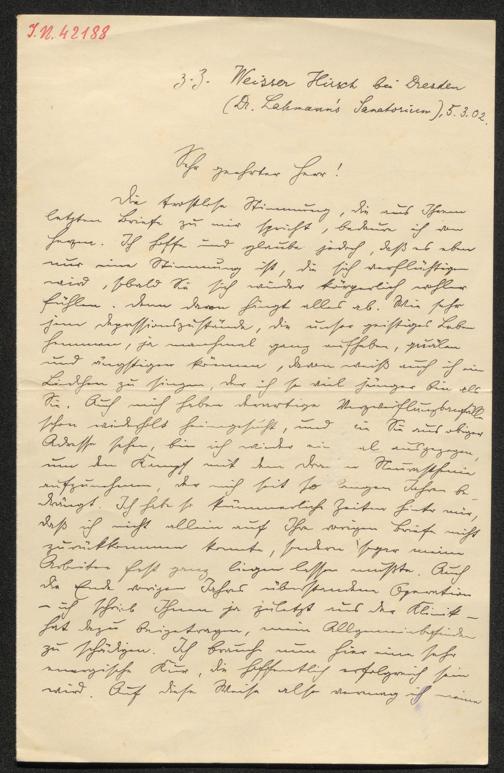 I.N. 42188
z. Z. Weisser Hirsch bei Dresden
(Dr. Lahmann's Sanatorium), 5.3.02.
Sehr geehrter Herr!
Die trostlose Stimmung, die aus Ihrem
letzten Briefe zu mir spricht, bedaure ich von
Herzen. Ich hoffe und glaube jedoch, daß es eben
nur eine Stimmung ist, die sich verflüchtigen
wird, sobald Sie sich wieder körperlich wohler
fühlen. Denn davon hängt alles ab. Wie sehr
jene Depressionszustände, die unser geistiges Leben
hemmen, ja manchmal ganz aufheben, quälen
und ängstigen können, davon weiß auch ich ein
Liedchen zu singen, der ich so viel jünger bin als
Sie. Auch mich haben derartige Verzweiflungsanfälle
schon wiederholt heimgesucht, und wie Sie aus obiger
Adresse sehen, bin ich wieder ein al ausgezogen,
um den Kampf mit dem Neurasthenie
aufzunehmen, der mich seit so langen Jahren be-
drängt. Ich habe so kümmerliche Zeiten hinter mir,
daß ich nicht allein auf Ihre vorigen Briefe nicht
zurückkommen konnte, sondern sogar meine
Arbeiten fast ganz liegen lassen mußte. Auch
die Ende vorigen Jahres überstandene Operation
– ich schrieb Ihnen ja zuletzt aus der Klinik –
hat dazu beigetragen, mein Allgemeinbefinden
zu schädigen. Ich brauche nun hier eine sehr
energische Kur, die hoffentlich erfolgreich sein
wird. Auf diese Weise also vermag ich meine